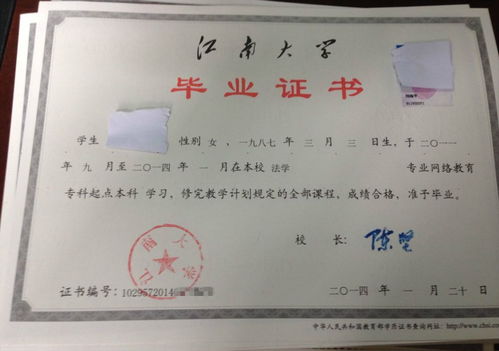 江南大学
毕业证书
学生 性别 女、一九八七 年 三 月 三 日生，于 二〇一一
年 九 月至 二〇一四 年 一 月在本校 法学 专业网络教育
专科起点本科 学习，修完教学计划规定的全部课程，成绩合格，准予毕业。
校 长：陈坚
江南大学
证书编号：1029572014
二〇一四 年 一 月 二十 日
中华人民共和国教育部学历证书查询网址：http://www.chsi.co